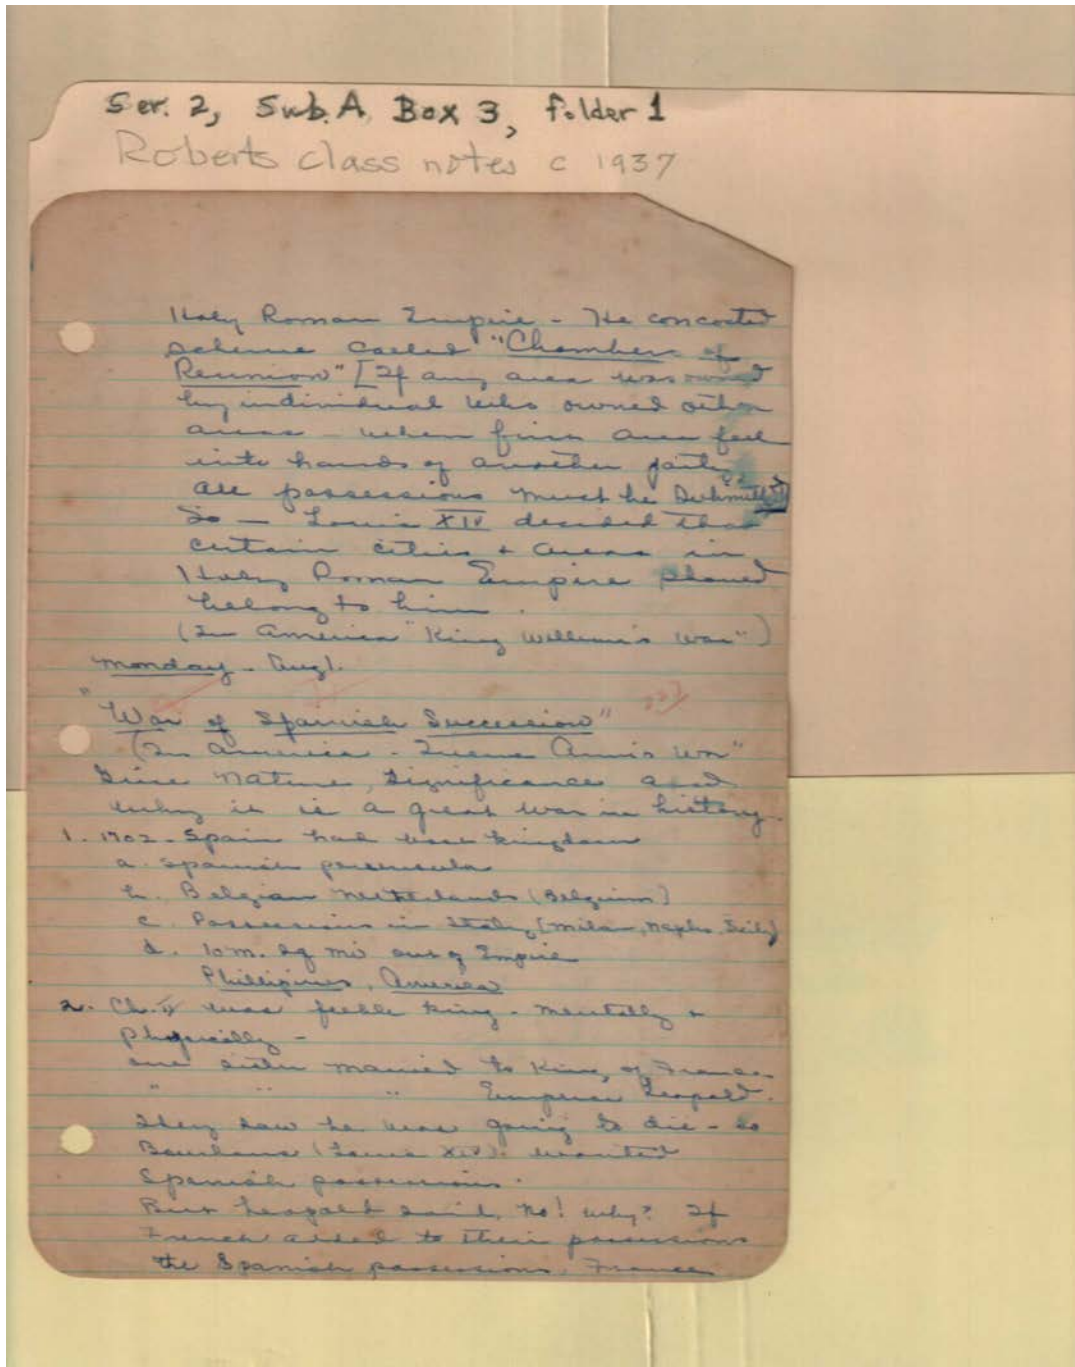 Ser. 2, Sub. A, Box 3, folder 1
Roberts class notes c 1937
Holy Roman Empire - He concocted
scheme called "Chamber of
Reunion" [If any area was owned
by individual who owned other
areas - when first area fell
into hands of another party,
all possessions must be submitted]
So - Louis XIV decided that
certain cities + areas in
Holy Roman Empire
belong to him.
(In America "King William's War")
Monday - Aug 1.
"War of Spanish Succession"
(In America - Queen Ann's War"
Give Nature, Significance and
why it is a great war in history.
1. 1702 - Spain had vast kingdom
a. Spanish peninsula
b. Belgian Netherlands (Belgium)
c. Possessions in Italy [Milan, Naples, Sicily]
d. 10 m. sq mi out of Empire
Phillipines, America
2. Ch. II was feeble king - mentally +
physically -
one sister married to King of France
" " " Emperor Leopold.
They saw he was going to die - so
Bourbons (Louis XIV) wanted
Spanish possessions.
But Leopold said, No! Why? If
French added to their possessions
the Spanish possessions, France